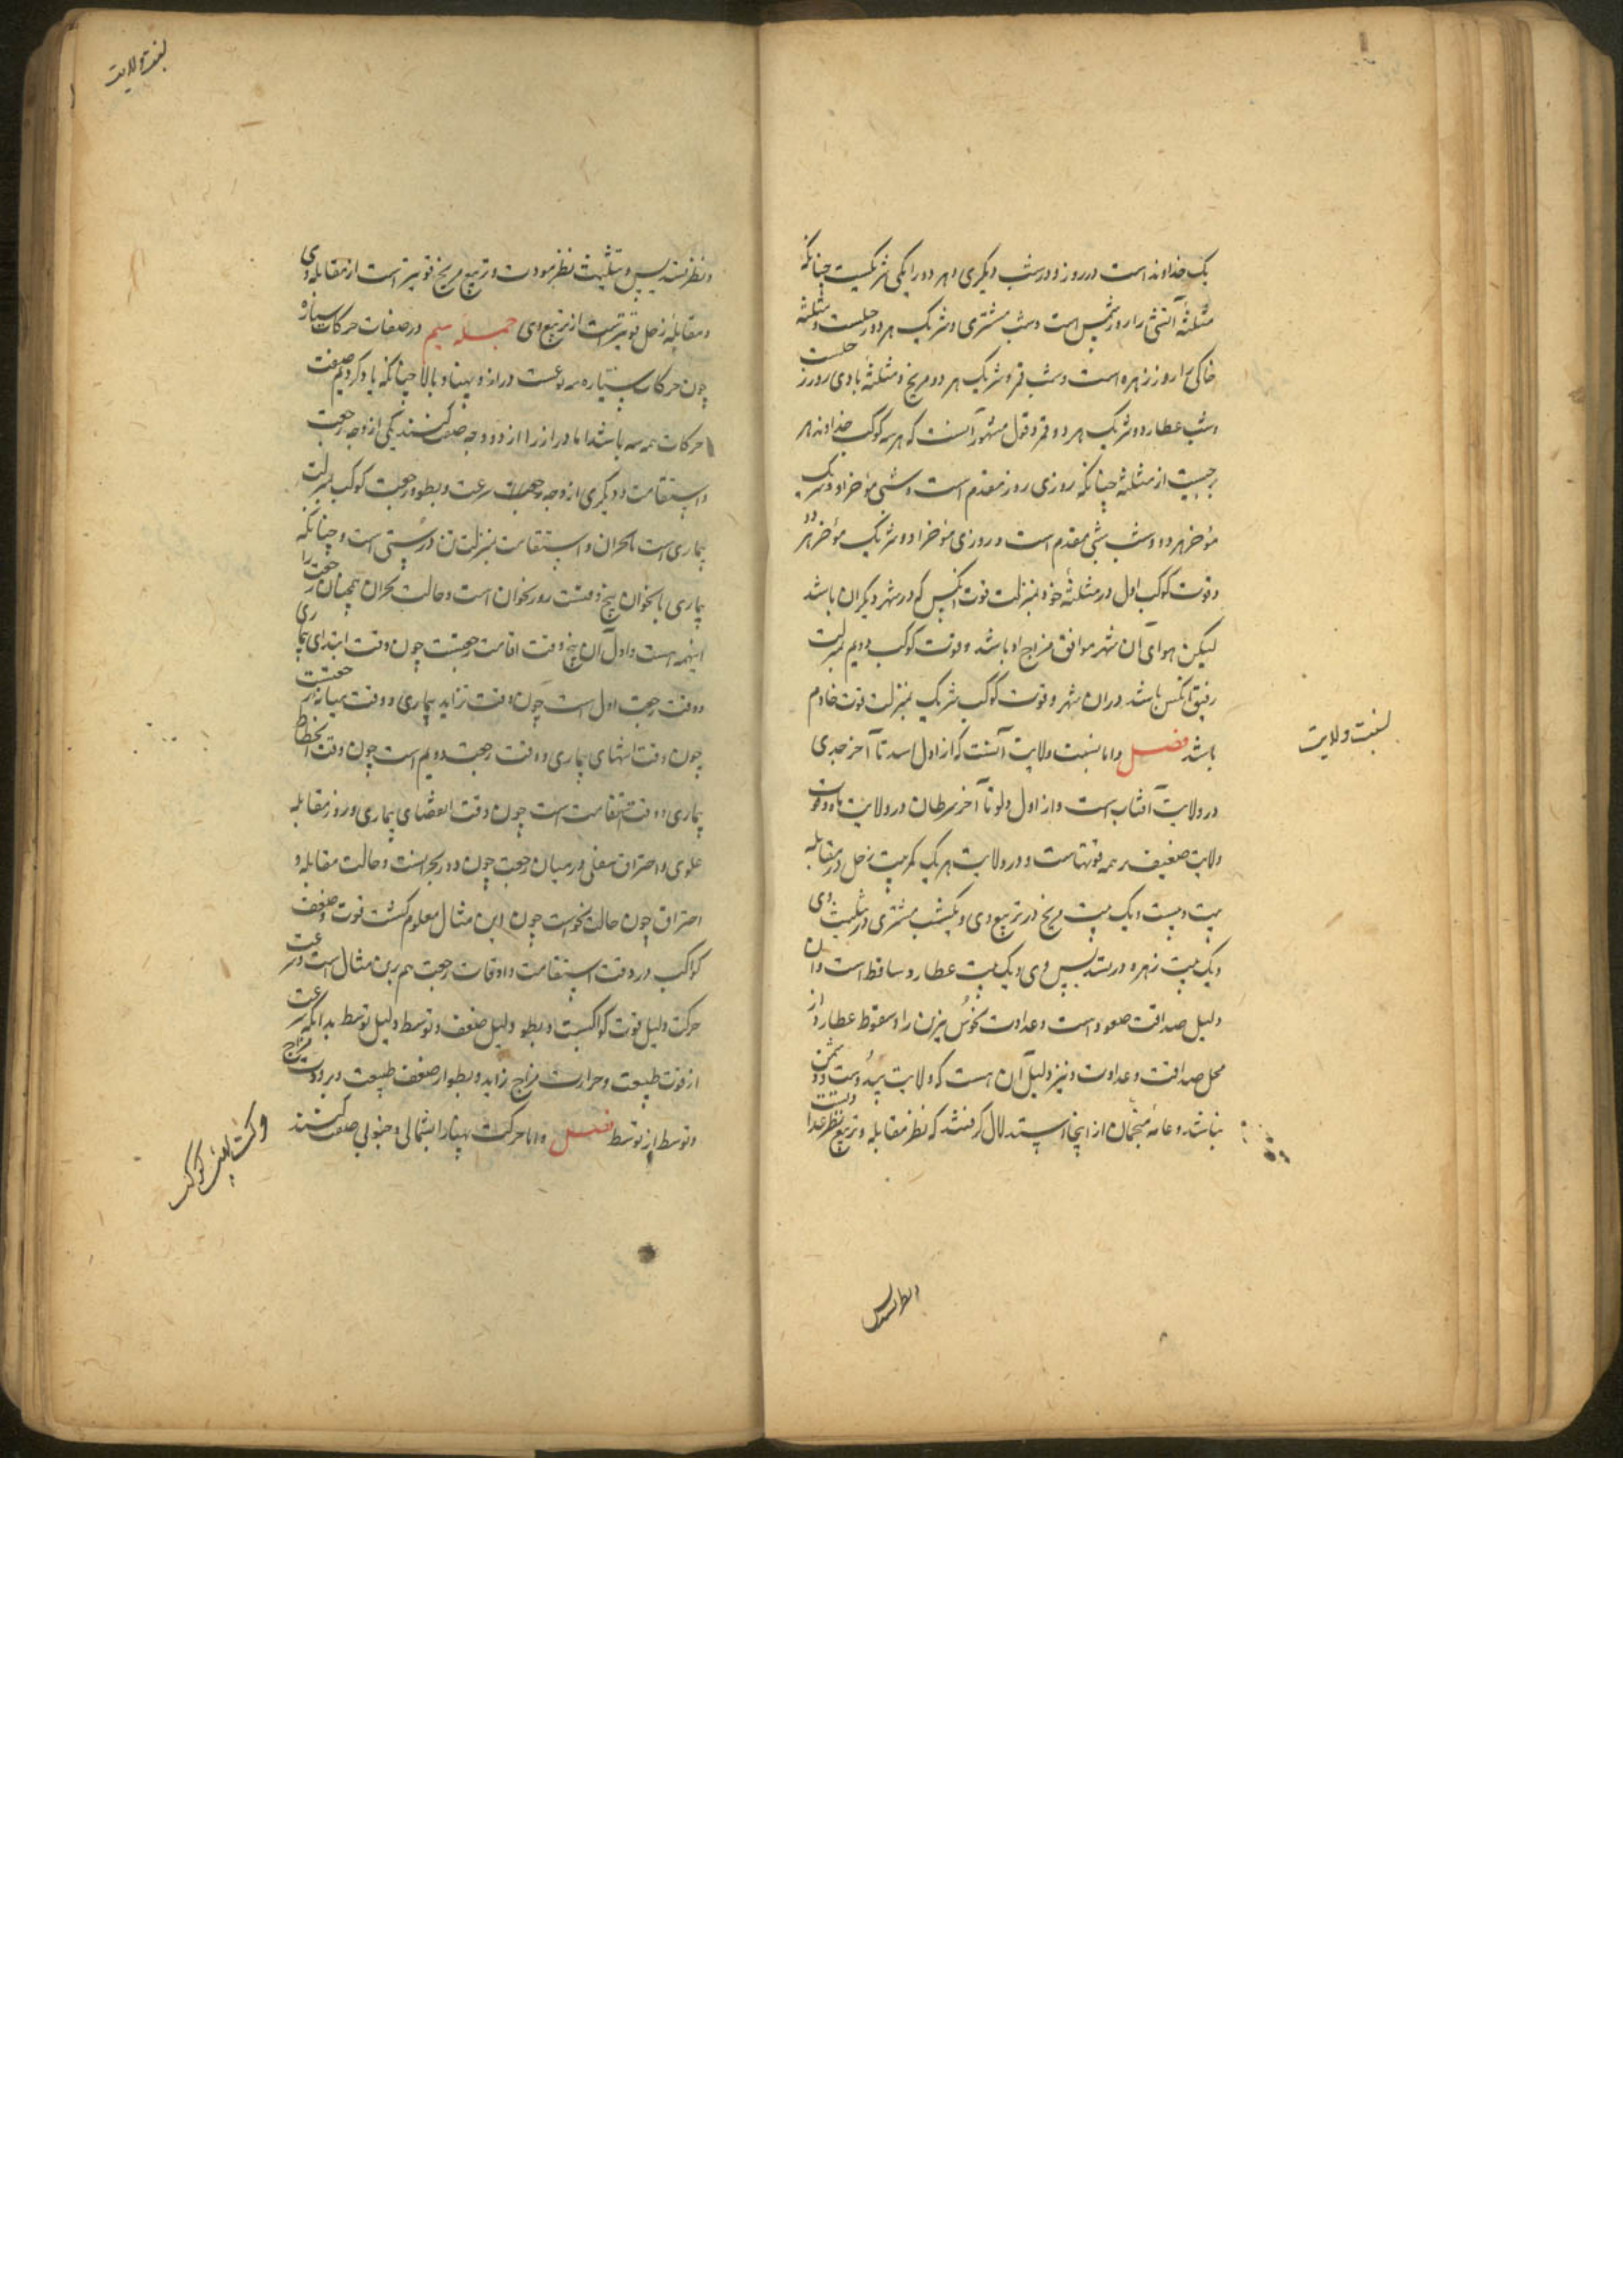 یک خداوند است در روز و در شب دیگری و هر دو را یکی شریکیست چنانکه
مثلثهٔ آتشی را روز شمس است و شب مشتری و شریک هر دو زحلست و مثلثه
خاکی را روز زهره است و شب قمر و شریک هر دو مریخ و مثلثهٔ بادی را روز زحلست
و شب عطارد و شریک هر دو قمر و قول مشهور آنست که هر سه کوکب خداوند هر
برجیست از مثلثه چنانکه روزی روز مقدم است و شبی مؤخر او و شریک
مؤخر هر دو و شب شبی مقدم است و روزی مؤخر او و شریک مؤخر هر دو
و قوت کوکب اول در مثلثهٔ خود بمنزلت قوت آنکس که در شهر دیگران باشد
لیکن هوای آن شهر موافق مزاج او باشد و قوت کوکب دویم بمنزلت
رفیق آنکس باشد در آن شهر و قوت کوکب شریک بمنزلت قوت خادم
باشد فصل و اما نسبت ولایت آنست که از اول اسد تا آخر جدی
در ولایت آفتاب است و از اول دلو تا آخر سرطان در ولایت ماه و قوت
ولایت ضعیف‌تر همه قوتهاست و در ولایت هر یک یک بیت زحل در مقابله
بیت ویست و یک بیت مریخ در تربیع وی و یک بیت مشتری در تثلیث وی
و یک بیت زهره در تسدیس وی و یک بیت عطارد ساقط است و آن
دلیل صداقت سعود است و عداوت نحوس نیرین را و سقوط عطارد از
محل صداقت و عداوت و نیز دلیل آن هست که ولایت بی دوست و دشمن
نباشد و عامهٔ منجمان از اینجا استدلال گرفتند که نظر مقابله و تربیع نظر عداوتست
نسبت ولایت
و نظر تسدیس
نسبت ولایت
و نظر تسدیس و تثلیث نظر مودت و تربیع مریخ قویتر است از مقابله وی
و مقابلهٔ زحل قویترست از تربیع وی جمله سیم در صفات حرکات ستاره
چون حرکات ستاره سه نوعست دراز و پهنا و بالا چنانکه یاد کردیم صفت
حرکات همه سه باشد اما دراز را از دو وجه صفت کنند یکی از وجه رجعت
و استقامت و دیگری از وجه سرعت و بطو و رجعت کوکب بمنزلت
بیماری است با بحران و استقامت بمنزلت تن درستی است و چنانکه
بیماری با بحران پنج وقتست روز بحران است و حالت بحران همچنان رجعت را
اینهمه هست و اول آن پنج وقت اقامت رجعتست چون وقت ابتدای بیماری
و وقت رجعت اول است چون وقت تزاید بیماری و وقت میانه رجعتست
چون وقت انتهای بیماری و وقت رجعت دویم است چون وقت انحطاط
بیماری و وقت استقامت است چون وقت انقضای بیماری و روز مقابله
علوی و احتراق سفلی در میان رجعت چون روز بحرانست و حالت مقابله و
احتراق چون حالت بحرانست چون این مثال معلوم گشت قوت و ضعف
کواکب در وقت استقامت و اوقات رجعت هم برین مثال است و سرعت
حرکت دلیل قوت کواکبست و بطو دلیل ضعف و توسط دلیل توسط بدانکه سرعت
از قوت طبیعت و حرارت مزاج زاید و بطو از ضعف طبیعت و برودت مزاج
و توسط از توسط فصل و اما حرکت پهنا را بشمالی و جنوبی صفت کنند